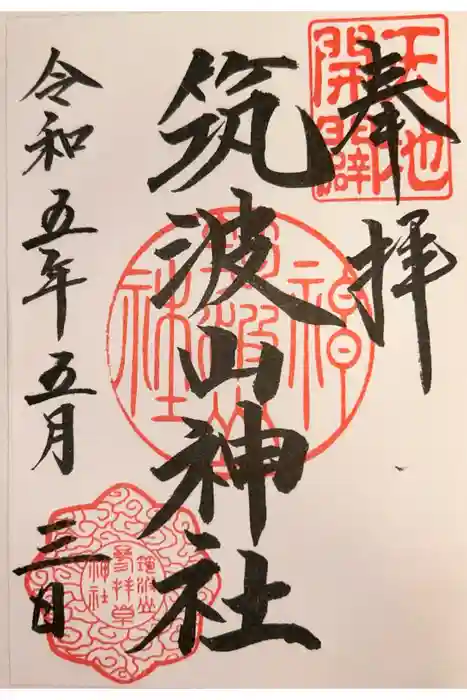 奉拝
天地
開闢
筑波山神社
筑波山
神社
令和五年五月三日
筑波山
参拝章
神社